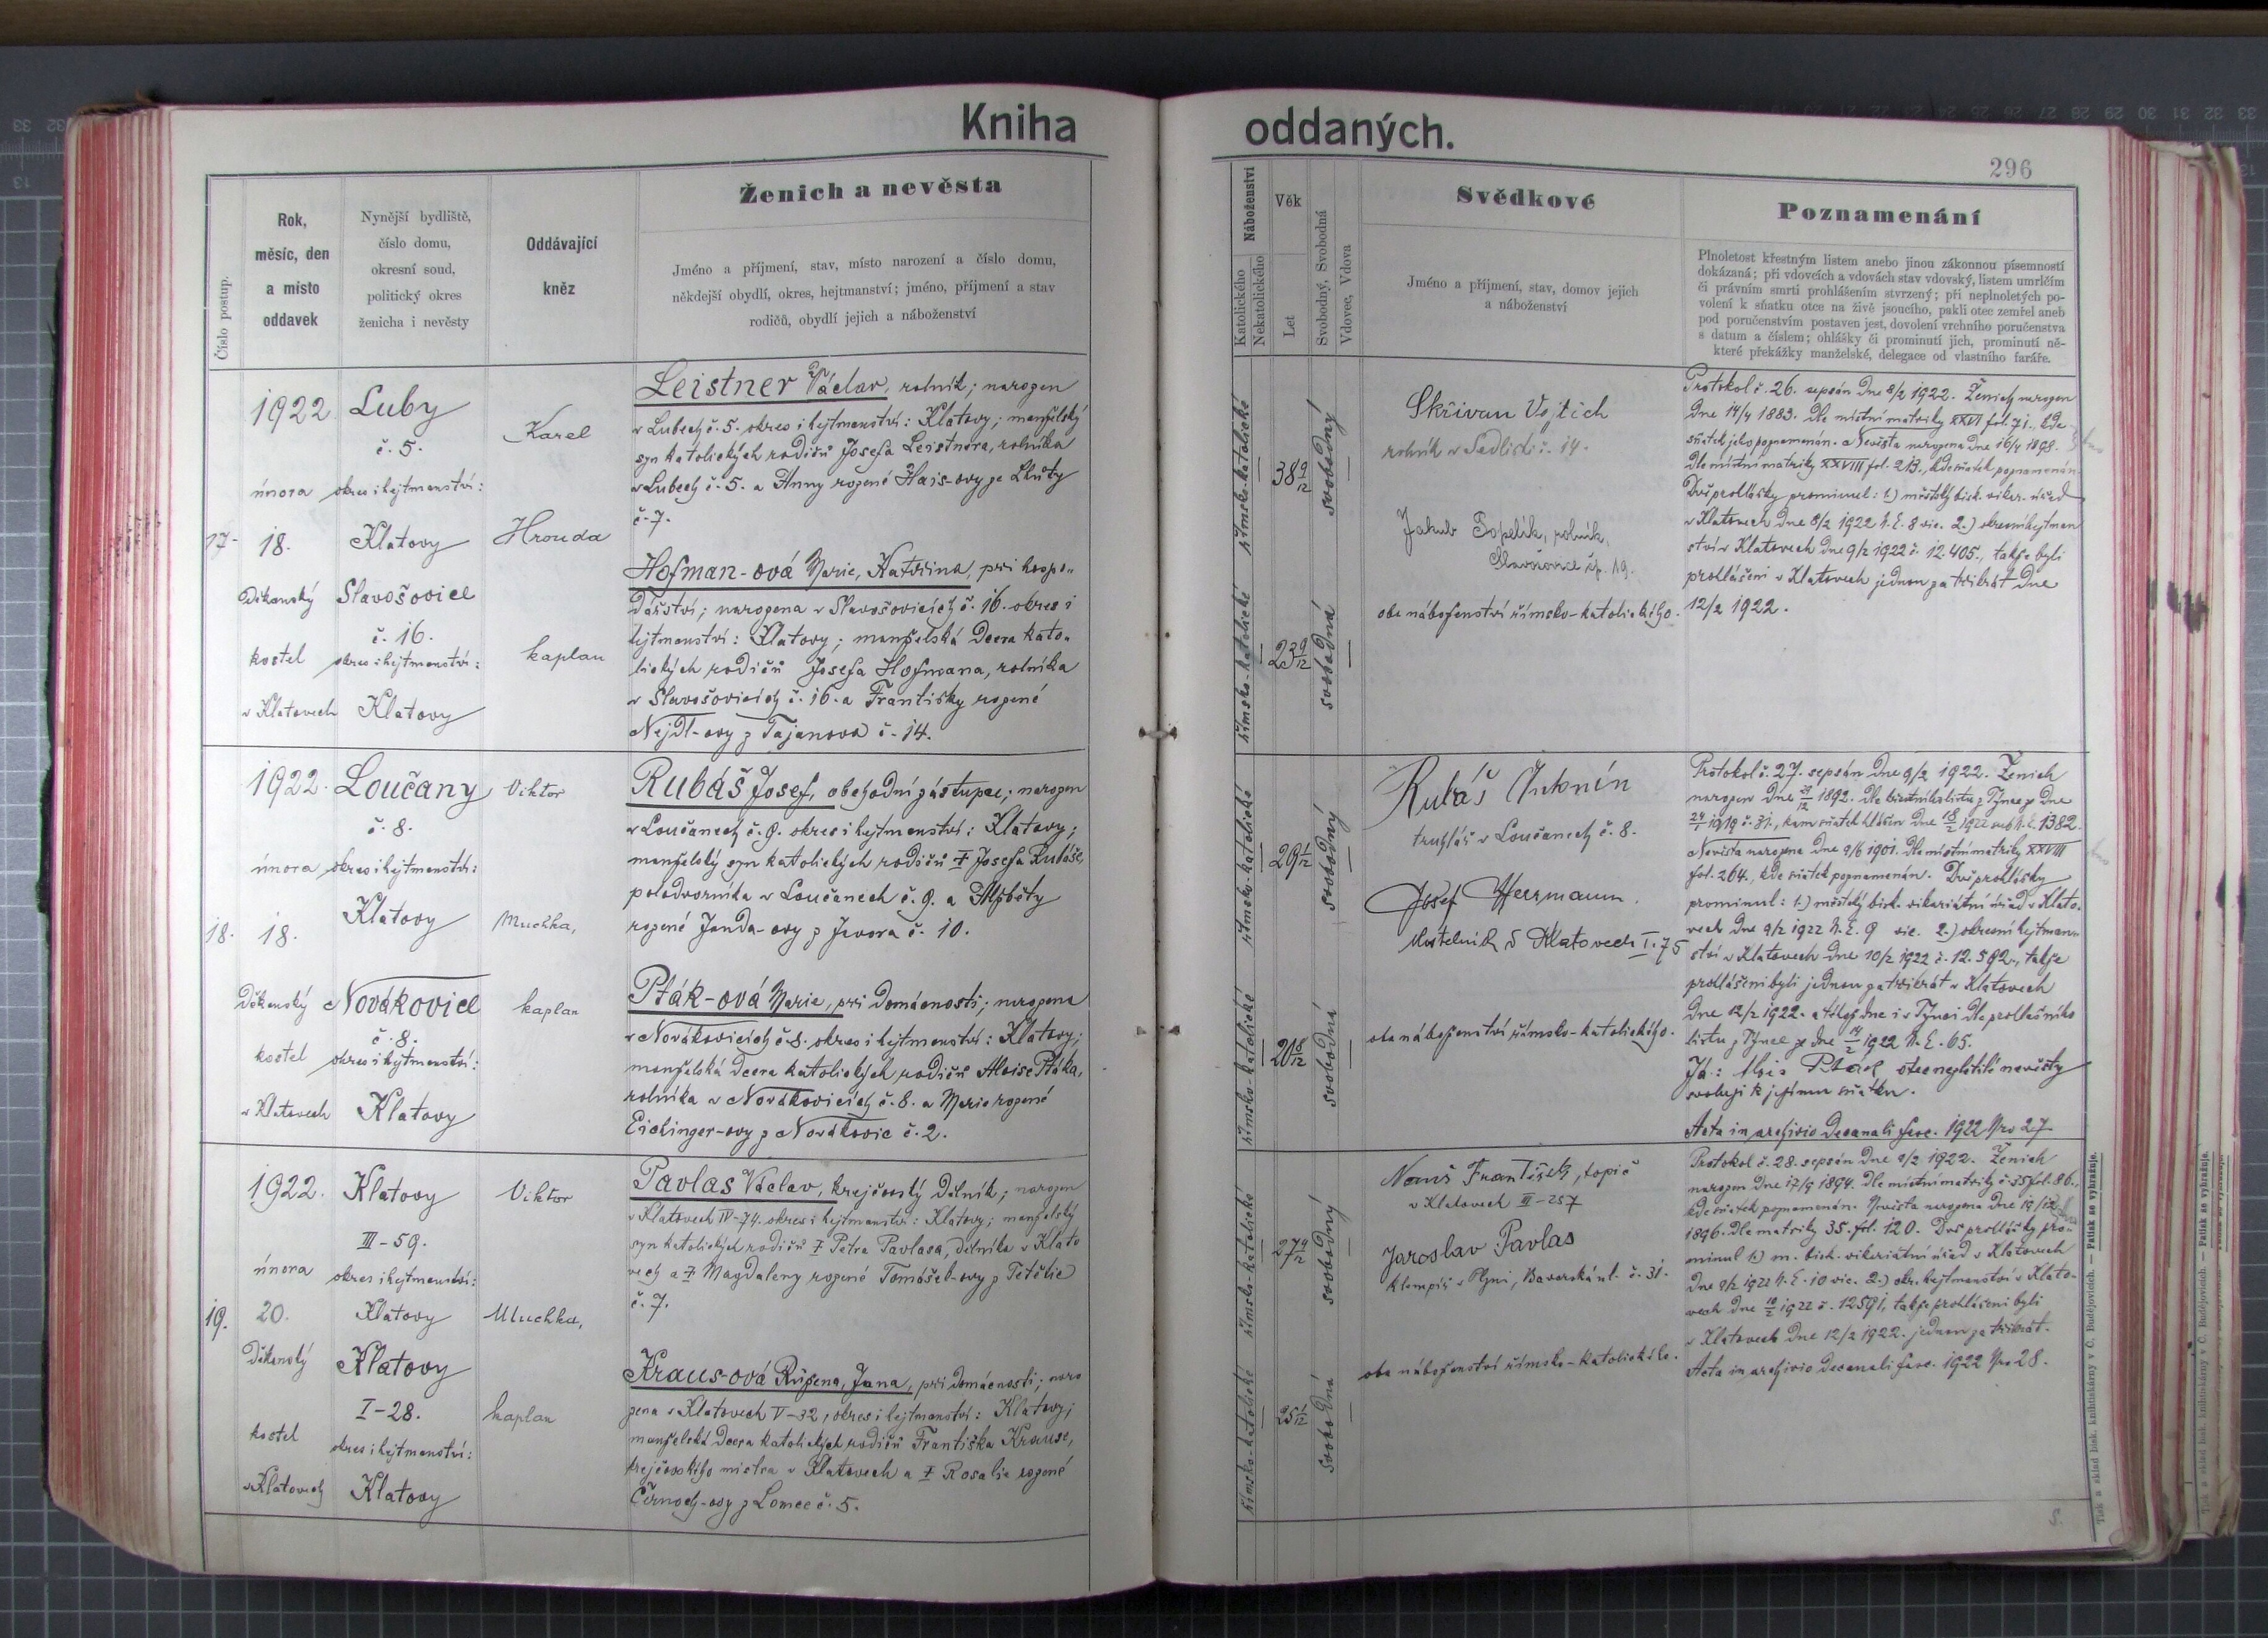 Kniha
oddaných.
296
Číslo postup.
Rok,
měsíc, den
a místo
oddavek
Nynější bydliště,
číslo domu,
okresní soud,
politický okres
ženicha i nevěsty
Oddávající
kněz
Ženich a nevěsta
Jméno a příjmení, stav, místo narození a číslo domu,
někdejší obydlí, okres, hejtmanství; jméno, příjmení a stav
rodičů, obydlí jejich a náboženství
Náboženství
Katolického
Nekatolického
Věk
Let
Svobodný, Svobodná
Vdovec, Vdova
Svědkové
Jméno a příjmení, stav, domov jejich
a náboženství
Poznamenání
Plnoletost křestným listem anebo jinou zákonnou písemností
dokázaná; při vdovcích a vdovách stav vdovský, listem umrlčím
či právním smrti prohlášením stvrzený; při neplnoletých po-
volení k sňatku otce na živě jsoucího, pakli otec zemřel aneb
pod poručenstvím postaven jest, dovolení vrchního poručenstva
s datum a číslem; ohlášky či prominutí jich, prominutí ně-
které překážky manželské, delegace od vlastního faráře.
17.
1922
února
18.
Děkanský
kostel
v Klatovech
Luby
č. 5.
okres i hejtmanství:
Klatovy
Slavošovice
č. 16.
okres i hejtmanství:
Klatovy
Karel
Hrouda
kaplan
Leistner Václav, rolník; narozen
v Lubech č. 5. okres i hejtmanství: Klatovy; manželský
syn katolických rodičů Josefa Leistnera, rolníka
v Lubech č. 5. a Anny rozené Hais-ovy ze Lhůty
č. 7.
Hofman-ová Marie, Kateřina, při hospo-
dářství; narozena v Slavošovicích č. 16. okres i
hejtmanství: Klatovy; manželská dcera kato-
lických rodičů Josefa Hofmana, rolníka
v Slavošovicích č. 16. a Františky rozené
Nejdl-ovy z Tajanova č. 14.
římsko-katolické
38 9/12
svobodný
římsko-katolické
23 9/12
svobodná
Skřivan Vojtěch
rolník v Sedlisti č. 14.
Jakub Popelík, rolník,
čp. 19.
oba náboženství římsko-katolického.
Protokol č. 26. sepsán dne 8/2 1922. Ženich narozen
dne 14/4 1883. Dle místní matriky XXVI fol. 71., kde
sňatek jeho poznamenán. Nevěsta narozena dne 16/4 1898.
Dle místní matriky XXVIII fol. 213., kde sňatek poznamenán.
Dvě prohlášky prominul: 1.) městský bisk. vikar. úřad
v Klatovech dne 8/2 1922 N. E. 8 vic. 2.) okresní hejtman
ství v Klatovech dne 9/2 1922 č. 12.405., takže byli
prohlášeni v Klatovech jednou za třikrát dne
12/2 1922.
18.
1922.
února
18.
Děkanský
kostel
v Klatovech
Loučany
č. 8.
okres i hejtmanství:
Klatovy
Novákovice
č. 8.
okres i hejtmanství:
Klatovy
Viktor
Muchka,
kaplan
Rubáš Josef, obchodní zástupce; narozen
v Loučanech č. 9. okres i hejtmanství: Klatovy;
manželský syn katolických rodičů † Josefa Rubáše,
polodvorníka v Loučanech č. 9. a Alžběty
rozené Janda-ovy z Javora č. 10.
Pták-ová Marie, při domácnosti; narozena
v Novákovicích č. 8. okres i hejtmanství: Klatovy;
manželská dcera katolických rodičů Aloise Ptáka,
rolníka v Novákovicích č. 8. a Marie rozené
Eichinger-ovy z Novákovic č. 2.
římsko-katolické
29 1/12
svobodný
římsko-katolické
20 8/12
svobodná
Rubáš Antonín
truhlář v Loučanech č. 8.
Josef Herrmann
kostelník v Klatovech I. 75
oba náboženství římsko-katolického.
Protokol č. 27. sepsán dne 9/2 1922. Ženich
narozen dne 1892. Dle křestního listu z Týnce ze dne
24/1 1919 č. 31., kam sňatek hlášen dne 18/2 1922 sub N. E. 1382.
Nevěsta narozena dne 9/6 1901. Dle místní matriky XXVIII
fol. 264., kde sňatek poznamenán. Dvě prohlášky
prominul: 1.) městský bisk. vikariátní úřad v Klato-
vech dne 9/2 1922 N. E. 9 vic. 2.) okresní hejtman-
ství v Klatovech dne 10/2 1922 č. 12.592., takže
prohlášeni byli jednou za třikrát v Klatovech
dne 12/2 1922. a téhož dne i v Týnci dle prohlašního
listu z Týnce ze dne 14/2 1922 N. E. 65.
Já: Alois Pták otec nezletilé nevěsty
svoluji k jejímu sňatku.
Acta in archivio decanali fasc. 1922 Nro 27
19.
1922.
února
20.
Děkanský
kostel
v Klatovech
Klatovy
III-59.
okres i hejtmanství:
Klatovy
Klatovy
I-28.
okres i hejtmanství:
Klatovy
Viktor
Muchka,
kaplan
Pavlas Václav, krejčovský dělník; narozen
v Klatovech IV-74. okres i hejtmanství: Klatovy; manželský
syn katolických rodičů † Petra Pavlasa, dělníka v Klato
vech a † Magdaleny rozené Tomášek-ovy z Tetětic
č. 7.
Kraus-ová Růžena, Jana, při domácnosti; naro
zena v Klatovech V-32, okres i hejtmanství: Klatovy;
manželská dcera katolických rodičů Františka Krause,
krejčovského mistra v Klatovech a † Rosalie rozené
Černoch-ovy z Lomce č. 5.
římsko-katolické
27 4/12
svobodný
římsko-katolické
25 1/12
svobodná
František, topič
v Klatovech III-257
Jaroslav Pavlas
klempíř v Plzni, Bavorská ul. č. 31.
oba náboženství římsko-katolického.
Protokol č. 28. sepsán dne 9/2 1922. Ženich
narozen dne 17/9 1894. Dle místní matriky č. 35 fol. 86.,
kde sňatek poznamenán. Nevěsta narozena dne 19/12
1896. Dle matriky 35. fol. 120. Dvě prohlášky pro-
minul 1.) m. bisk. vikariátní úřad v Klatovech
dne 9/2 1922 N. E. 10 vic. 2.) okr. hejtmanství v Klato-
vech dne 10/2 1922 č. 12591, takže prohlášeni byli
v Klatovech dne 12/2 1922. jednou za třikrát.
Acta in archivio decanali fasc. 1922 Nro 28.
Tisk a sklad bisk. knihtiskárny v Č. Budějovicích. — Patisk se vyhražuje.